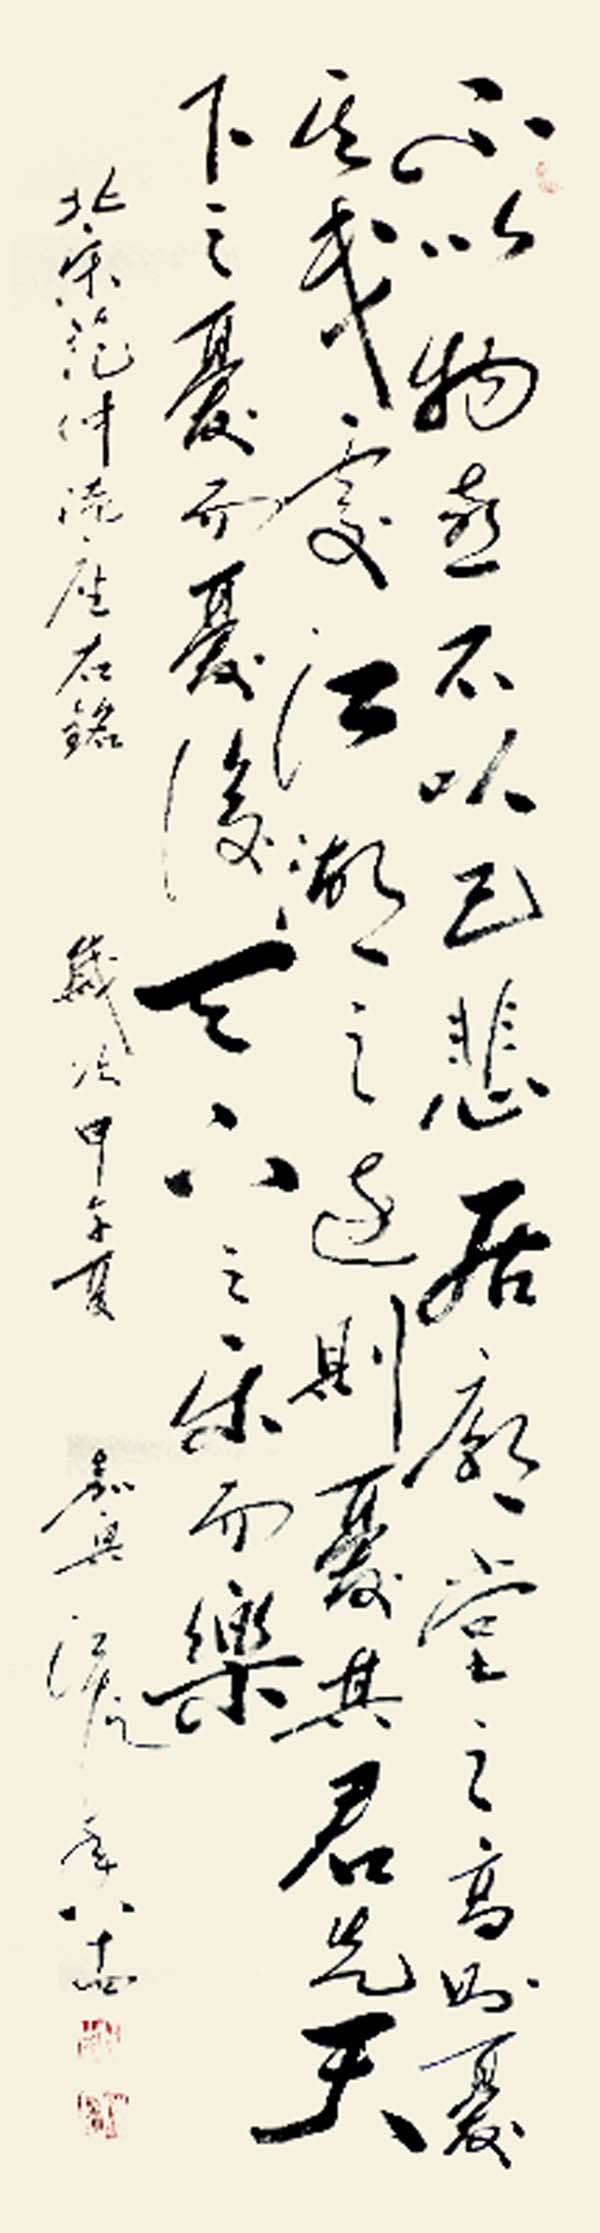 不以物喜不以己悲居廟堂之高則憂
其民處江湖之遠則憂其君先天
下之憂而憂後天下之樂而樂
北宋范仲淹座右銘 歲次甲午夏 嘉興 年八十四